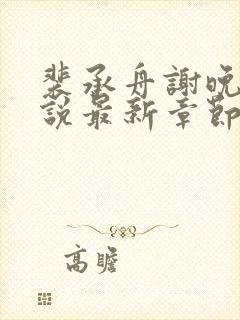 裴承舟謝晚
說最新章節
高瞻